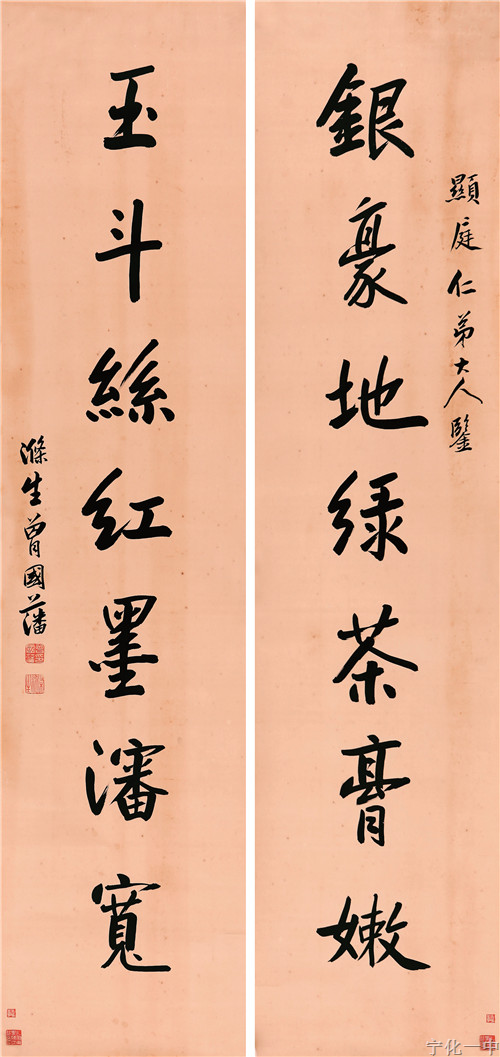 顯庭仁弟大人鑒
銀豪地綠茶膏嫩
玉斗絲紅墨瀋寬
滌生曾國藩
宁化一中